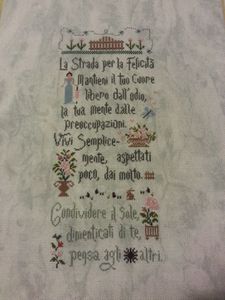 La Strada per la Felicità
Mantieni il tuo Cuore
libero dall'odio,
la tua mente dalle
preoccupazioni.
Vivi Semplice-
mente, aspettati
poco, dai molto.
Condividere il Sole,
dimenticati di te,
pensa agli altri.